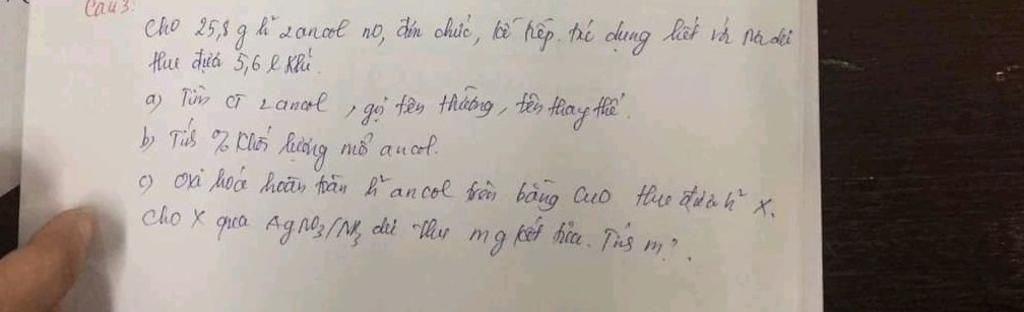 Câu 3:
Cho 25,8 g h² 2 ancol no, đơn chức, kế tiếp. tác dụng hết với Na dư
thu được 5,6 l khí.
a) Tìm CT 2 ancol, gọi tên thường, tên thay thế.
b) Tính % khối lượng mỗi ancol.
c) Oxi hoá hoàn toàn h² ancol trên bằng CuO thu được h² X.
Cho X qua AgNO3/NH3 dư thu m g kết tủa. Tính m?.